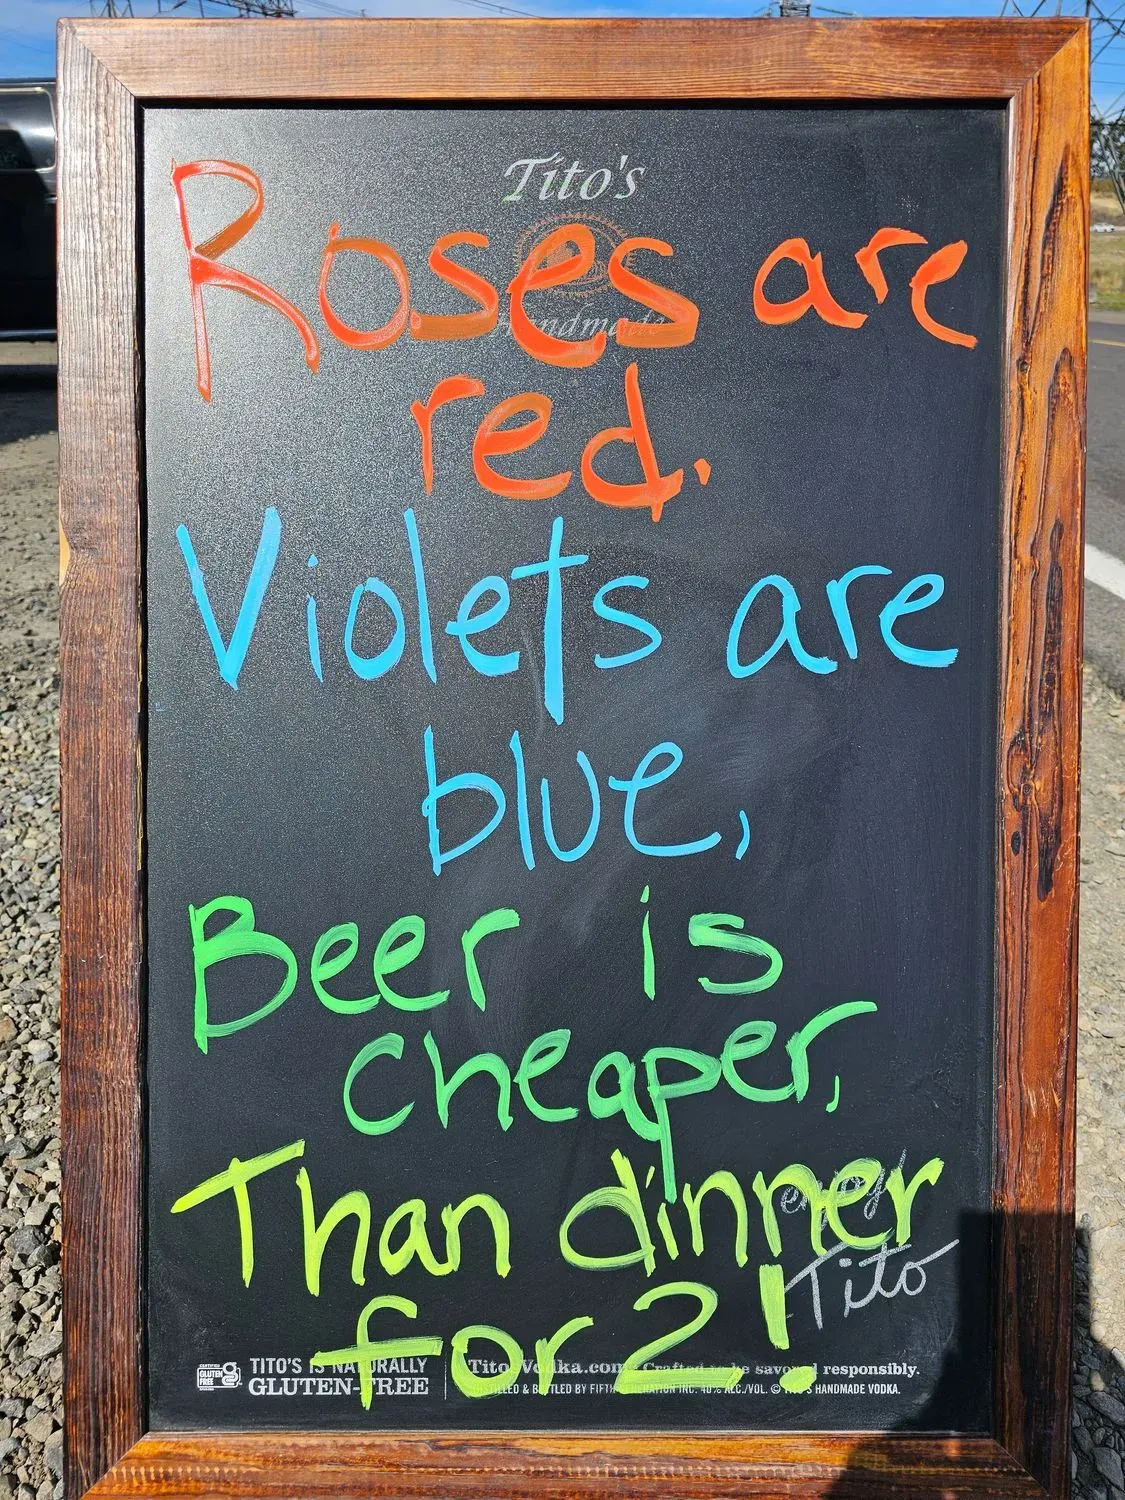 Tito's
Handmade
Roses are
red.
Violets are
blue,
Beer is
cheaper,
Than dinner
for 2!
enjoy!
Tito
CERTIFIED
GLUTEN
FREE
TITO'S IS NATURALLY
GLUTEN-FREE
TitosVodka.com Crafted to be savored responsibly.
DISTILLED & BOTTLED BY FIFTH GENERATION INC. 40% ALC./VOL. © TITO'S HANDMADE VODKA.